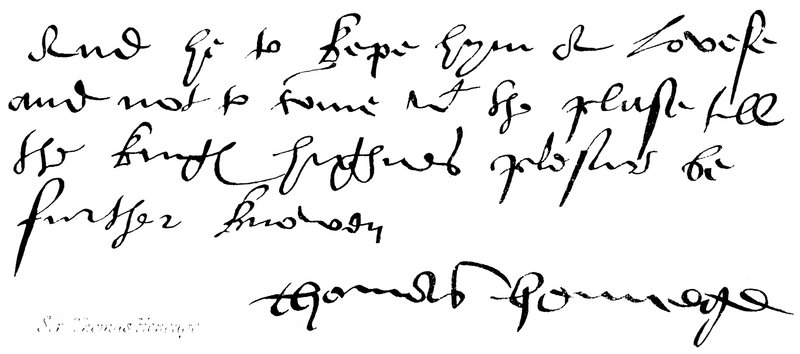 And he to kepe hym a lovese
and not to come wt the pluse till
the kingꝭ highnes plesure be
further knowen
Thomas Hennege
Sir Thomas Heneage